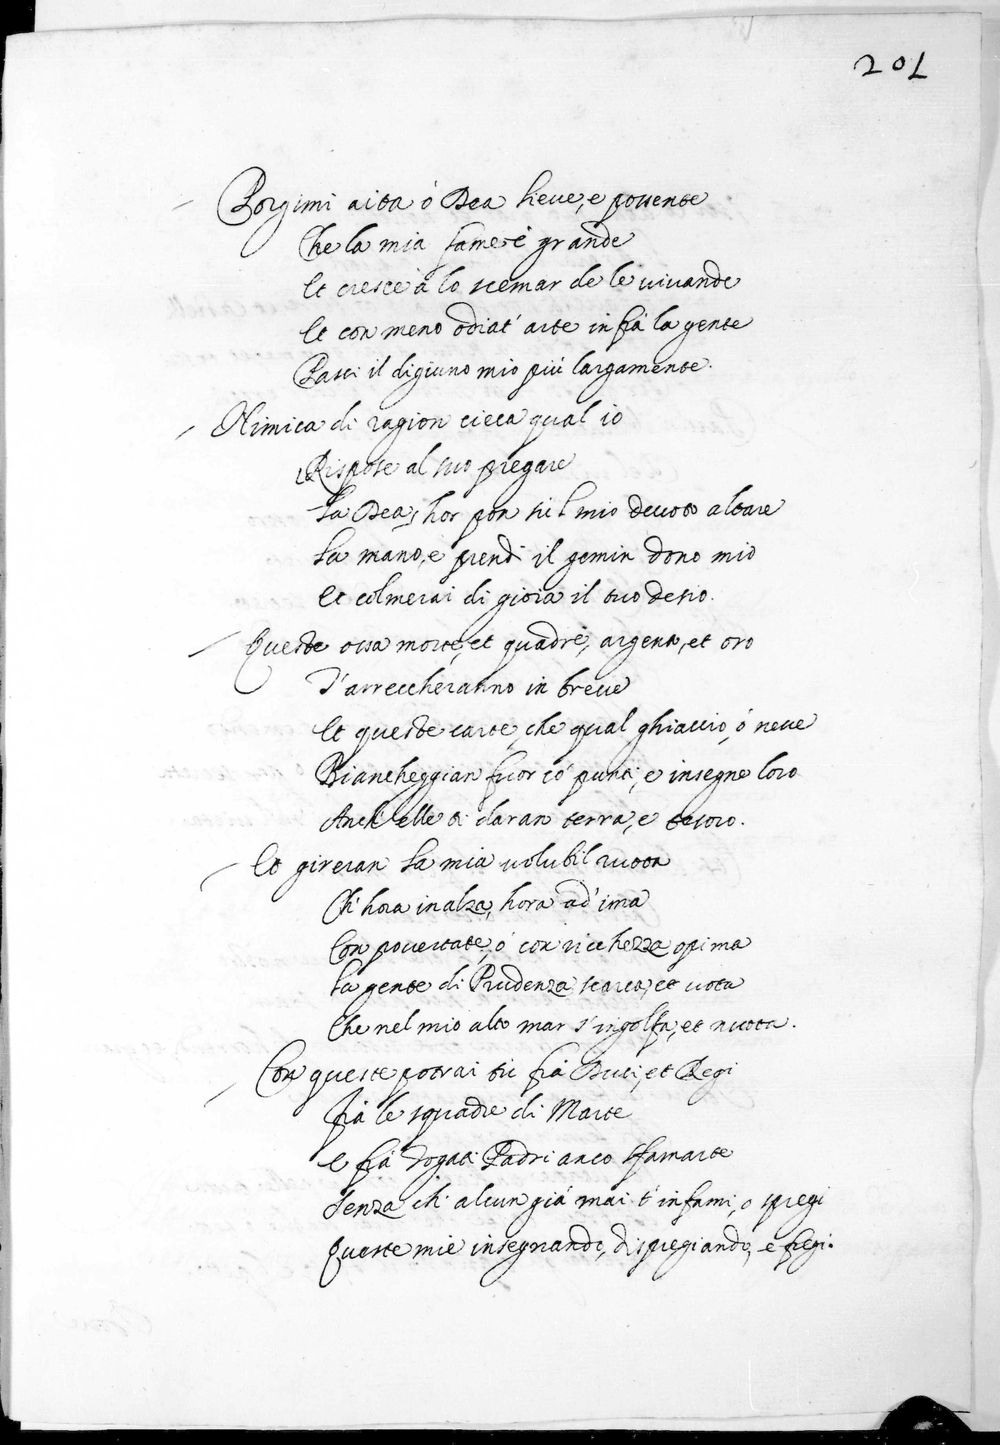 201
Porgimi aita ò Dea lieue, e possente
Che la mia fame è grande
Et cresce à lo scemar de le viuande
Et con meno odiat' arte in frà la gente
Pasci il digiuno mio più largamente.
Nimica di ragion cieca qual io
Rispose al suo pregare
La Dea, hor pon sù 'l mio deuoto altare
La mano, e prendi il gemin dono mio
Et colmerai di gioia il tuo desio.
Queste ossa morte, et quadre, argento, et oro
T'arreccheranno in breue
Et queste carte, che qual ghiaccio, ò neue
Biancheggian fuor co' punti, e insegne loro
Anch' elle ti daran terra, e tesoro.
Et gireran la mia volubil ruota
Ch' hora inalza, hora ad' ima
Con pouertate, ò con ricchezza opima
La gente di Prudenza scarca, et vota
Che nel mio alto mar s'ingolfa, et nuota.
Con queste potrai tù frà Duci, et Regi
Frà le squadre di Marte
E frà Togati Padri anco sfamarte
Senza ch' alcun già mai t'infami, o spregi
Queste mie insegnando, dispregiando, e fregi.